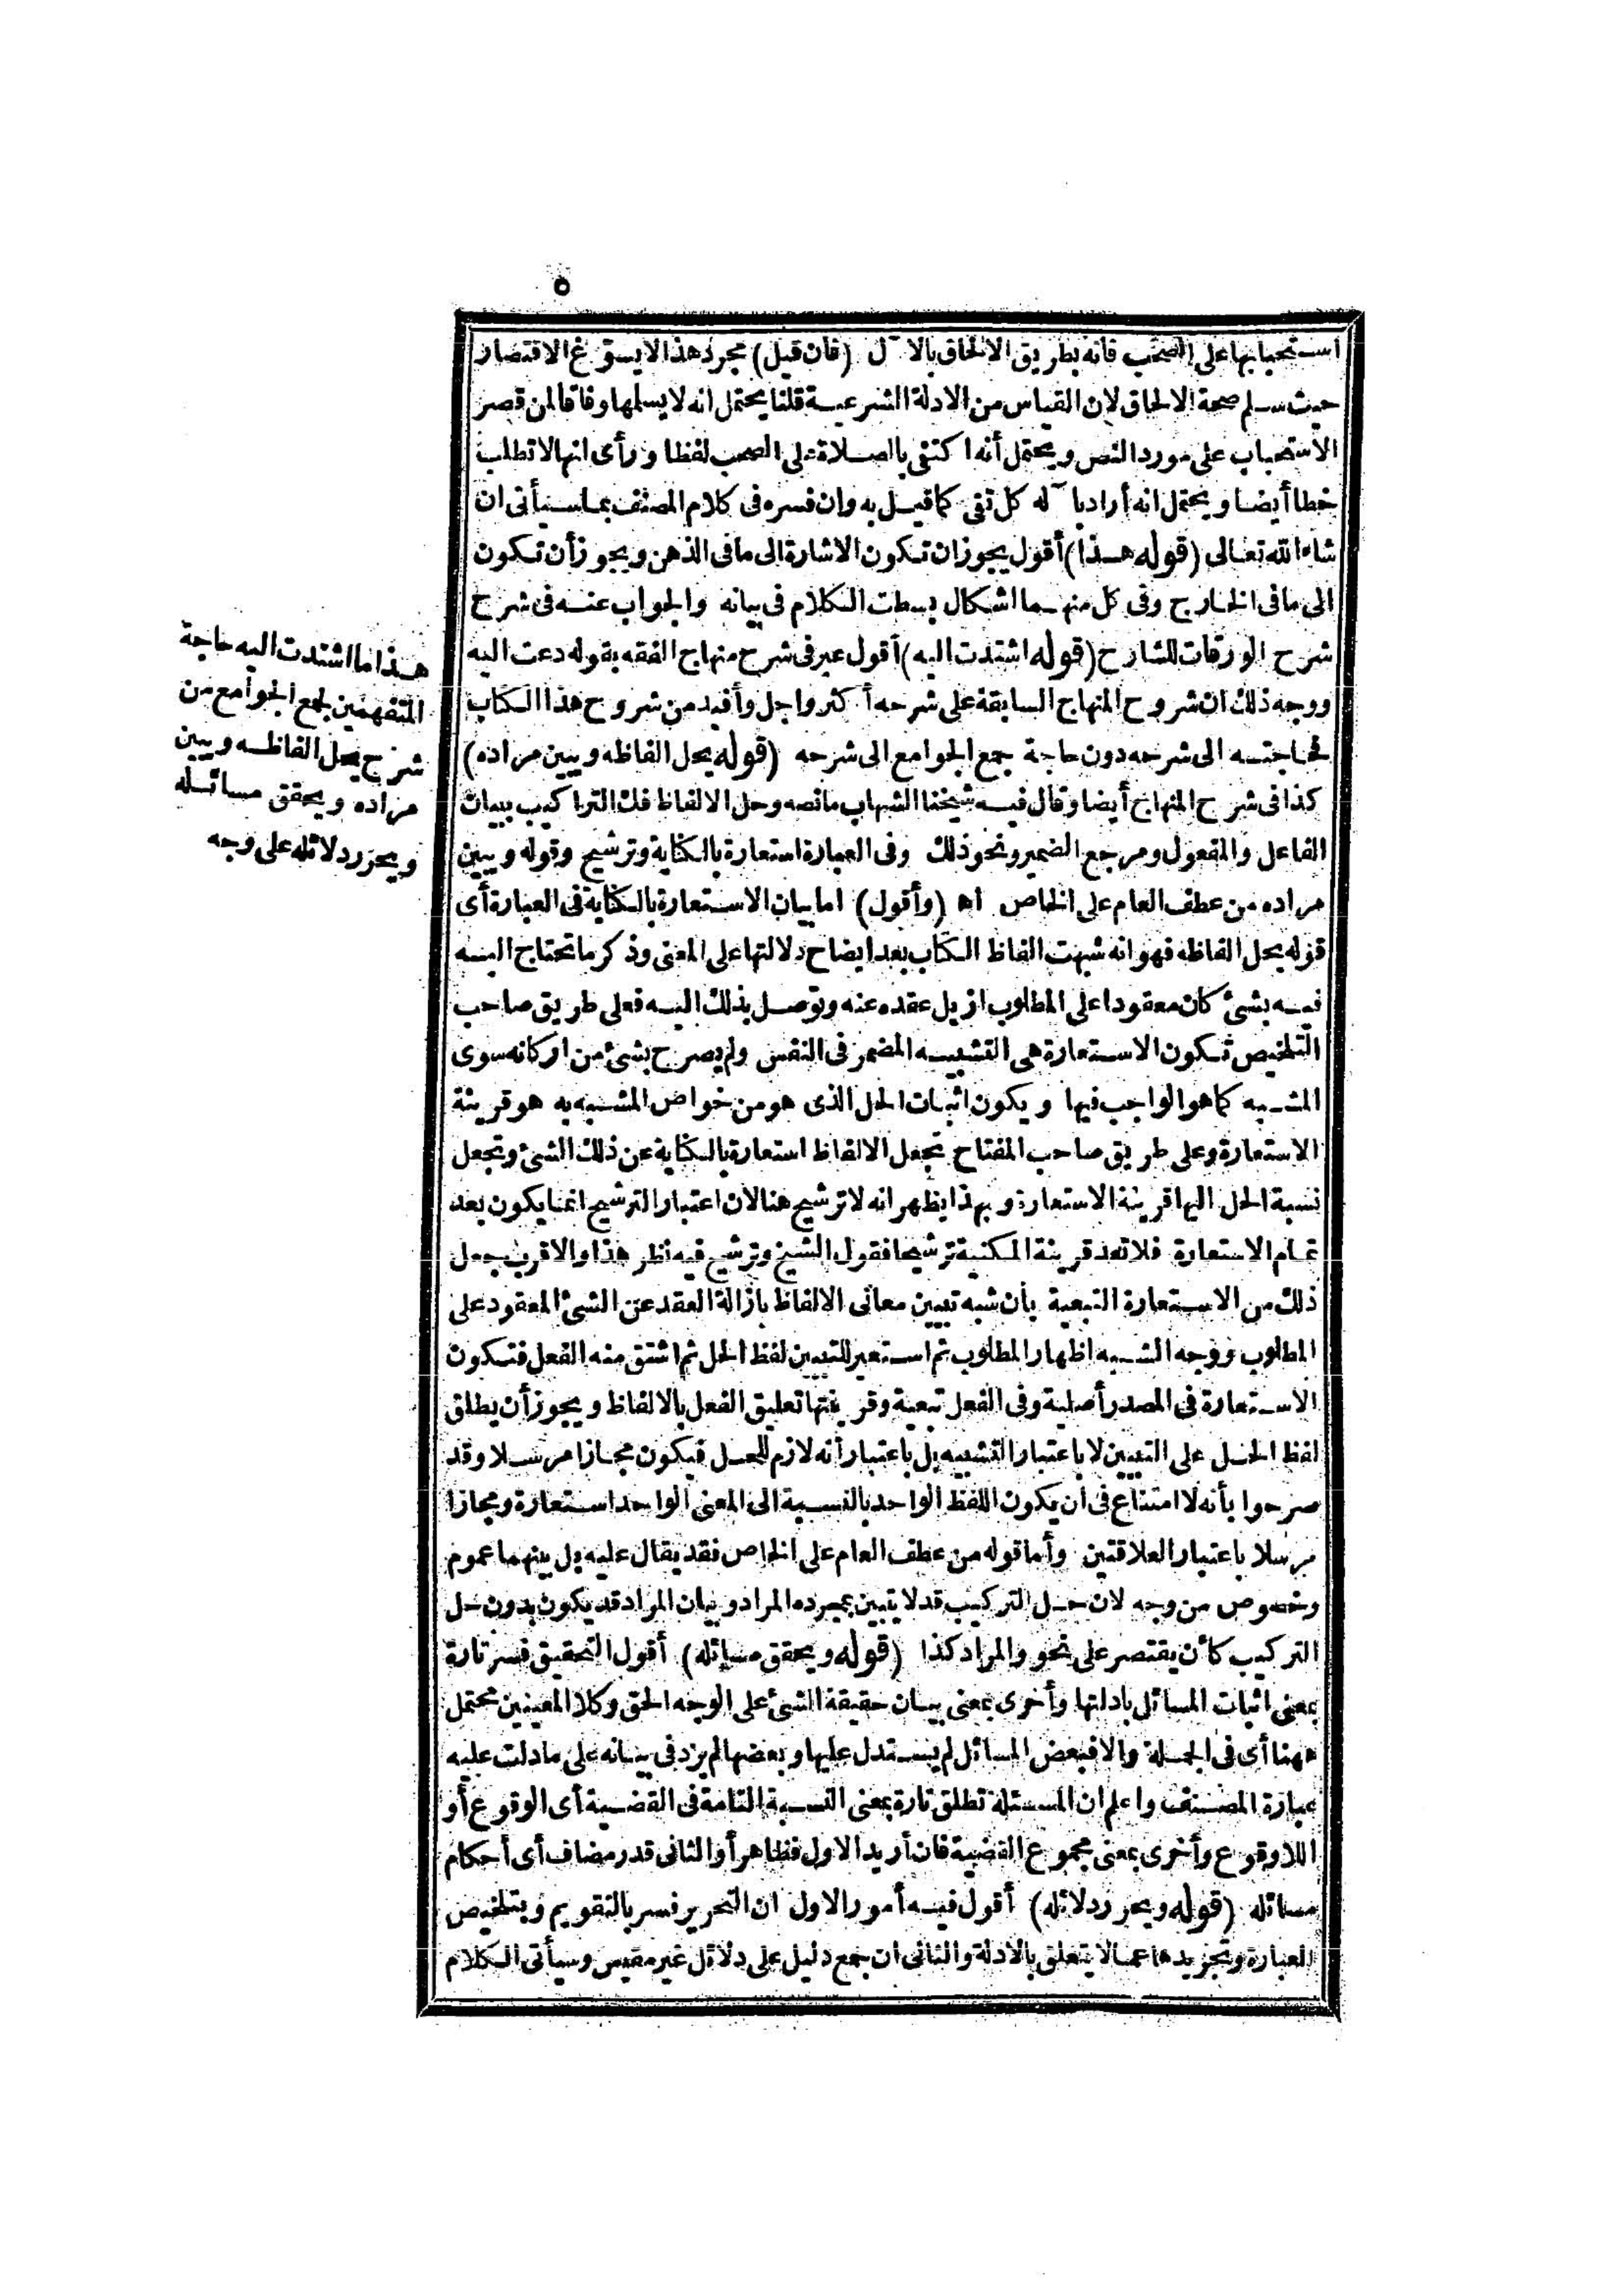 ٥
استحبابها على الصحب فانه بطريق الالحاق بالآل (فان قيل) مجرد هذا لا يسوّغ الاقتصار
حيث سلم صحة الالحاق لان القياس من الادلة الشرعية قلنا يحتمل انه لا يسلمها وفاقا لمن قصر
الاستحباب على مورد النص ويحتمل أنه اكتفى بالصلاة على الصحب لفظا ورأى انها لا تطلب
خطا أيضا ويحتمل انه أراد بآله كل تقى كما قيل به وان فسره فى كلام المصنف بما سيأتى ان
شاء الله تعالى (قوله هذا) أقول يجوز ان تكون الاشارة الى ما فى الذهن ويجوز أن تكون
الى ما فى الخارج وفى كل منهما اشكال بسطت الكلام فى بيانه والجواب عنه فى شرح
شرح الورقات للشارح (قوله اشتدت اليه) أقول عبر فى شرح منهاج الفقه بقوله دعت اليه
ووجه ذلك ان شروح المنهاج السابقة على شرحه أكثر واجل وأفيد من شروح هذا الكتاب
فحاجته الى شرحه دون حاجة جمع الجوامع الى شرحه (قوله يحل الفاظه ويبين مراده)
كذا فى شرح المنهاج أيضا وقال فيه شيخنا الشهاب ما نصه وحل الالفاظ فك التراكيب ببيان
الفاعل والمفعول ومرجع الضمير ونحو ذلك وفى العبارة استعارة بالكناية وترشيح وقوله ويبين
مراده من عطف العام على الخاص اه (وأقول) اما بيان الاستعارة بالكناية فى العبارة أى
قوله يحل الفاظه فهو انه شبهت الفاظ الكتاب بعد ايضاح دلالتها على المعنى وذكر ما تحتاج اليه
فيه بشئ كان معقودا على المطلوب ازيل عقده عنه وتوصل بذلك اليه فعلى طريق صاحب
التلخيص تكون الاستعارة هى التشبيه المضمر فى النفس ولم يصرح بشئ من اركانه سوى
المشبه كما هو الواجب فيها ويكون اثبات الحل الذى هو من خواص المشبه به هو قرينة
الاستعارة وعلى طريق صاحب المفتاح تجعل الالفاظ استعارة بالكناية عن ذلك الشئ وتجعل
نسبة الحل اليها قرينة الاستعارة وبهذا يظهر انه لا ترشيح هنا لان اعتبار الترشيح انما يكون بعد
تمام الاستعارة فلا تعد قرينة المكنية ترشيحا فقول الشيخ وترشيح فيه نظر هذا والاقرب جعل
ذلك من الاستعارة التبعية بأن شبه تبيين معانى الالفاظ بازالة العقد عن الشئ المعقود على
المطلوب ووجه الشبه اظهار المطلوب ثم استعير للتبيين لفظ الحل ثم اشتق منه الفعل فتكون
الاستعارة فى المصدر أصلية وفى الفعل تبعية وقرينتها تعليق الفعل بالالفاظ ويجوز أن يطلق
لفظ الحل على التبيين لا باعتبار التشبيه بل باعتبار أنه لازم للحل فيكون مجازا مرسلا وقد
صرحوا بأنه لا امتناع فى ان يكون اللفظ الواحد بالنسبة الى المعنى الواحد استعارة ومجازا
مرسلا باعتبار العلاقتين وأما قوله من عطف العام على الخاص فقد يقال عليه بل بينهما عموم
وخصوص من وجه لان حل التركيب قد لا يتبين بمجرده المراد وبيان المراد قد يكون بدون حل
التركيب كأن يقتصر على نحو والمراد كذا (قوله ويحقق مسائله) أقول التحقيق فسر تارة
بمعنى اثبات المسائل بادلتها وأخرى بمعنى بيان حقيقة الشئ على الوجه الحق وكلا المعينين محتمل
ههنا أى فى الجملة والا فبعض المسائل لم يستدل عليها وبعضها لم يزد فى بيانه على ما دلت عليه
عبارة المصنف واعلم ان المسئلة تطلق تارة بمعنى النسبة التامة فى القضية أى الوقوع أو
اللاوقوع وأخرى بمعنى مجموع القضية فان أريد الاول فظاهر أو الثانى قدر مضاف أى أحكام
مسائله (قوله ويحرر دلائله) أقول فيه أمور الاول ان التحرير فسر بالتقويم وبتلخيص
العبارة وتجريدها عما لا يتعلق بالادلة والثانى ان جمع دليل على دلائل غير مقيس وسيأتى الكلام
هذا ما اشتدت اليه حاجة
المتفهمين لجمع الجوامع من
شرح يحل الفاظه ويبين
مراده ويحقق مسائله
ويحرر دلائله على وجه